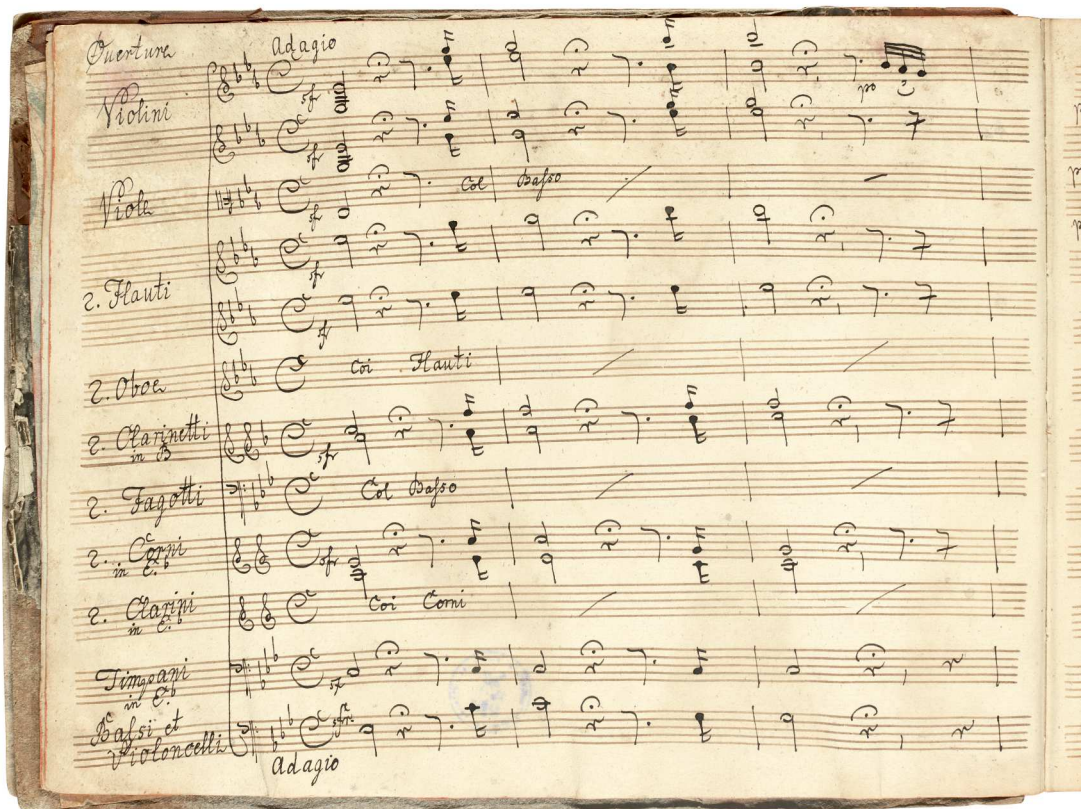 Ouverture
Adagio
Violini
sfr
po
sfr
Viole
sfr
Col Basso
sfr
2. Flauti
sf
2. Oboe
Coi Flauti
2. Clarinetti
in B
sfr
2. Fagotti
Col Basso
2. Corni
in E.b
sfr
2. Clarini
in E.b
Coi Corni
Timpani
in E.b
sf
Bassi et
Violoncelli
sfr
Adagio